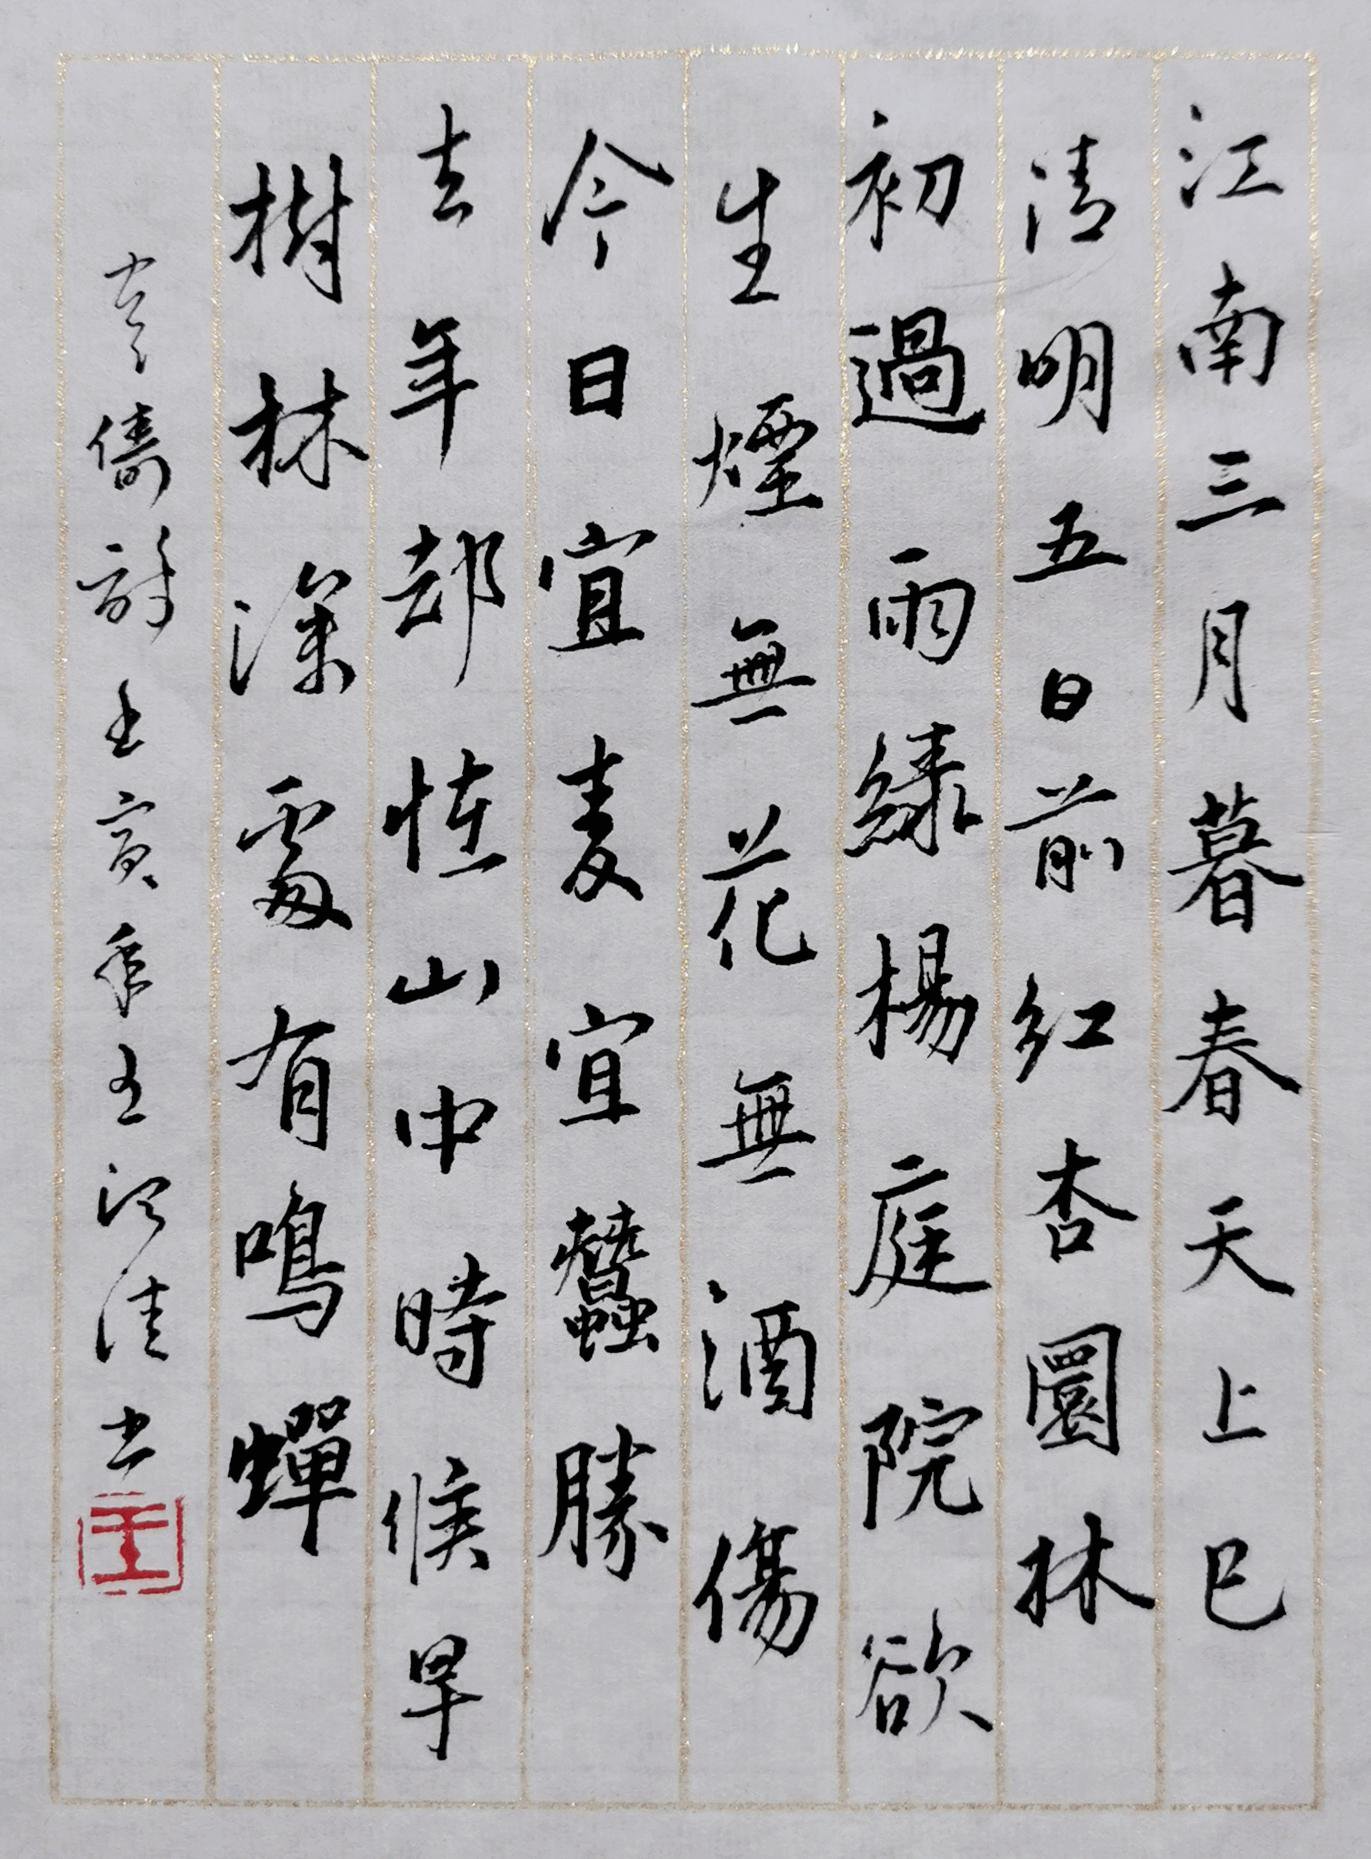 江南三月暮春天上巳
清明五日前紅杏園林
初過雨綠楊庭院欲
生煙無花無酒傷
今日宜麦宜蠶勝
去年却恠山中時候早
樹林深處有鳴蟬
儔詩壬寅年王书